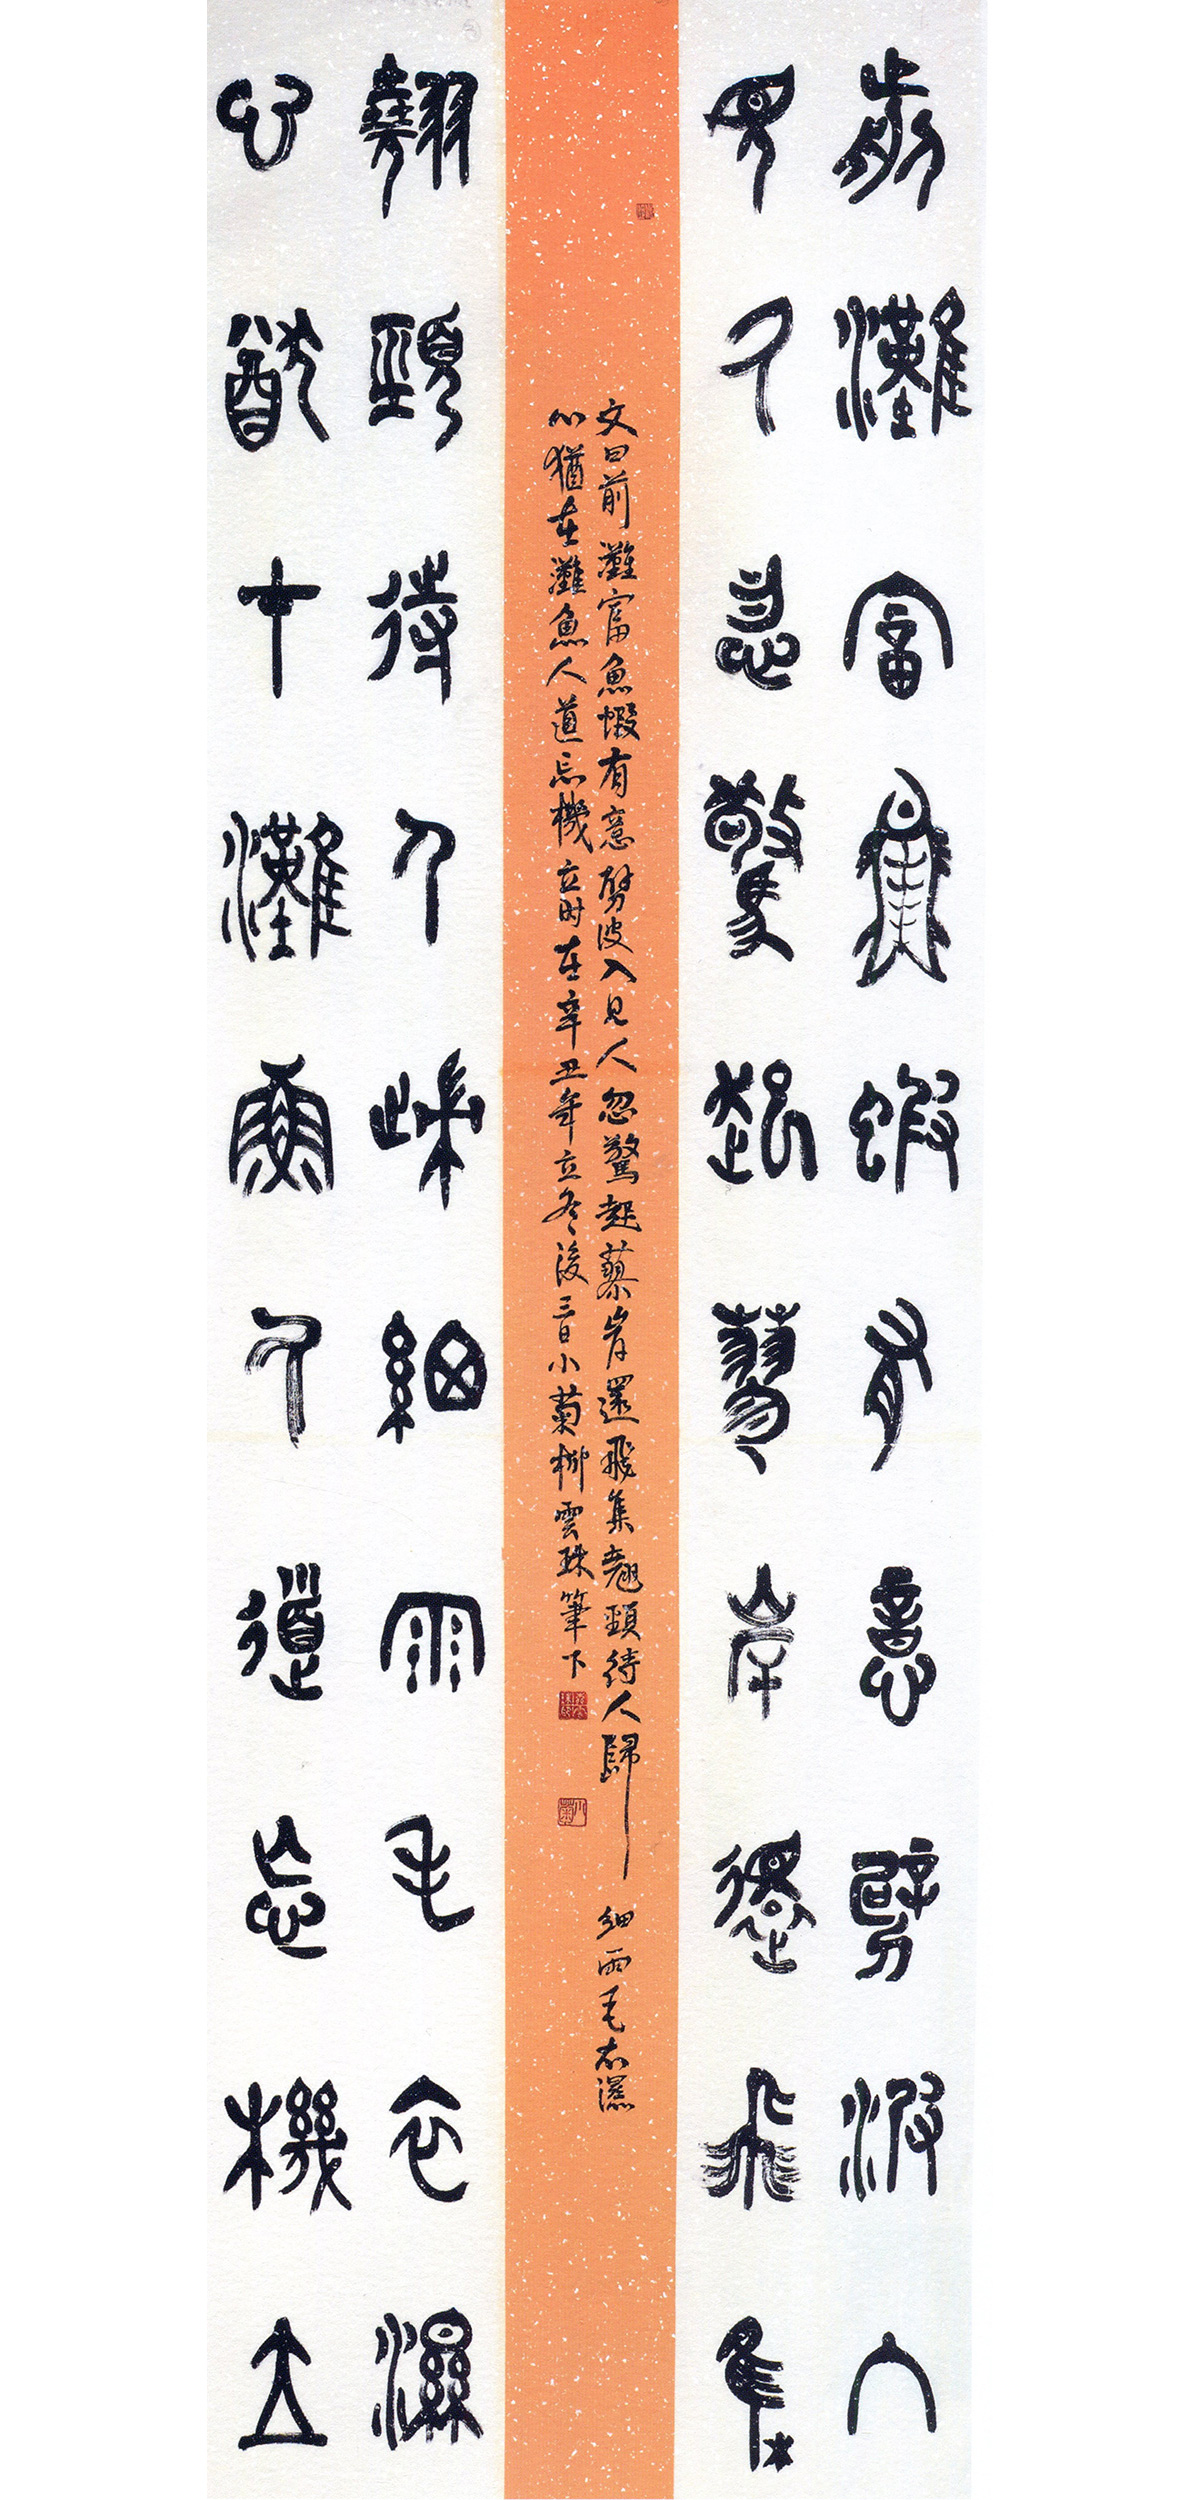 前灘富魚蝦有意劈波入
見人忽驚起蓼岸還飛集
文曰前灘富魚蝦有意劈波入見人忽驚起蓼岸還飛集翹頸待人歸細雨毛衣濕
心猶在灘魚人道忘機立时在辛丑年立冬後三日小菊柳雲珠筆下
翹頸待人歸細雨毛衣濕
心猶在灘魚人道忘機立